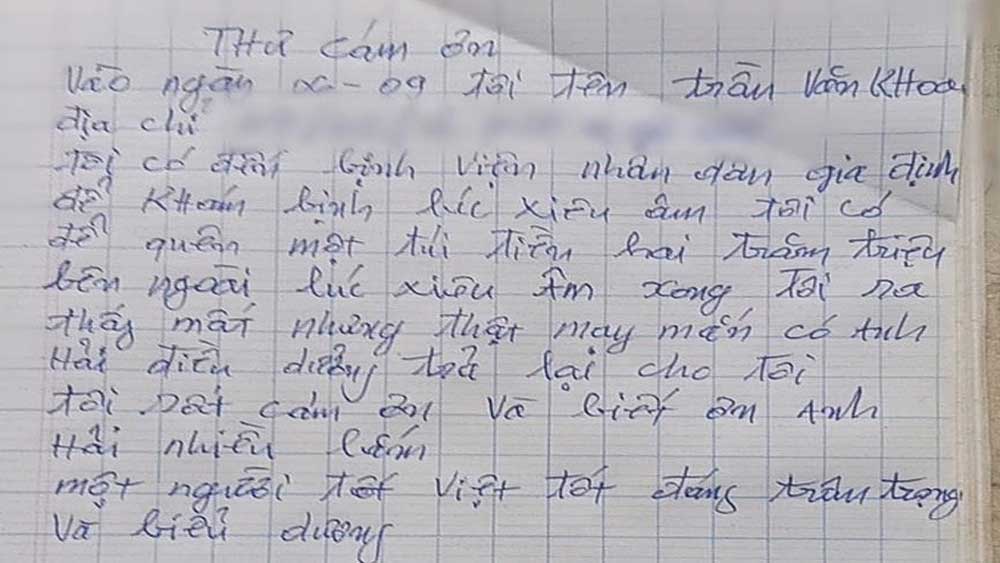 Thư cám ơn
Vào ngàn x-09 tôi tên trần Văn KHoa
địa chỉ
tôi có đến bịnh viện nhân dân gia định
để KHám bịnh lúc xiêu âm tôi có
để quên một túi tiền hai trăm triệu
bên ngoài lúc xiêu âm xong tôi ra
thấy mất nhưng thật may mắn có Anh
Hải điều dưỡng trả lại cho tôi
tôi rất cám ơn và biết ơn Anh
Hải nhiều lắm
một người tốt việt tốt đáng trân trọng
Và biểu dương